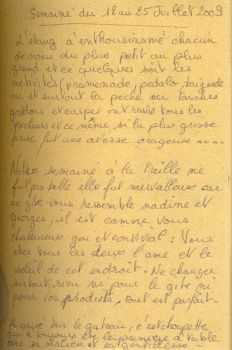 Semaine du 18 au 25 Juillet 2009
L'étang a enthousiasmé chacun
de nous du plus petit au plus
grand et ce quelques soit les
activités (promenade, pedalo, baignade
ou et surtout la peche ou tanches
gardons et carpes ont ravis tous les
pecheurs et ce même si la plus grosse
prise fut une averse orageuse ....
Notre semaine à la treille ne
fut pas belle elle fut merveilleuse car
ce gite vous ressemble nadine et
georges, il est comme vous
chaleureux gai et convivial : Vous
êtes tous les deux l'ame et le
soleil de cet endroit. Ne changer
surtout rien ni pour le gite ni
pour vos produits, tout est parfait.
sur le gateau, c'est choupette
qui a toujours été la première à table
sa malice et sa gentillesse